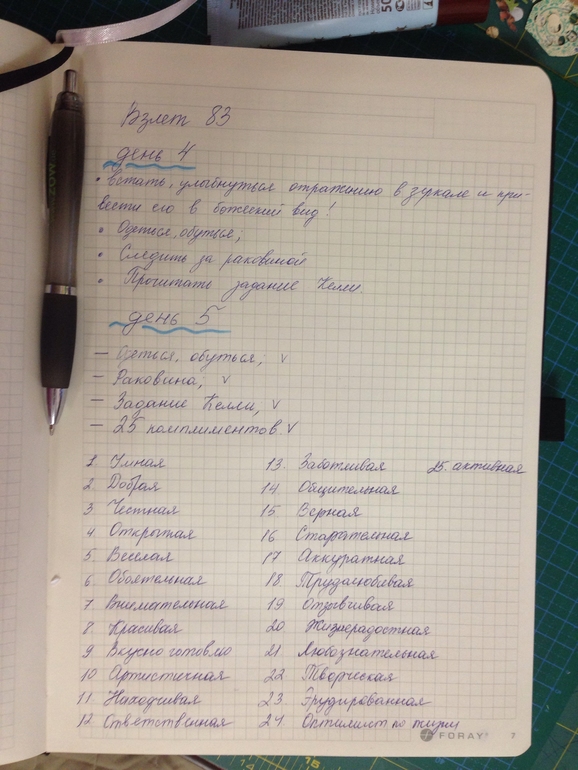 Взлет 83
день 4
• Встать, улыбнуться отражению в зеркале и при-
вести его в божеский вид!
• Одеться, обуться;
• Следить за раковиной
• Прочитать задание Келли.
день 5
— Одеться, обуться; v
— Раковина; v
— Задание Келли, v
— 25 комплиментов. v
1. Умная
2. Добрая
3. Честная
4. Открытая
5. Веселая
6. Обоятельная
7. Внимательная
8. Красивая
9. Вкусно готовлю
10. Артистичная
11. Находчивая
12. Ответственная
13. Заботливая
14. Общительная
15. Верная
16. Старательная
17. Аккуратная
18. Трудолюбивая
19. Отзывчивая
20. Жизнерадостная
21. Любознательная
22. Творческая
23. Эрудированная
24. Оптимист по жизни
25. активная
FORAY
7